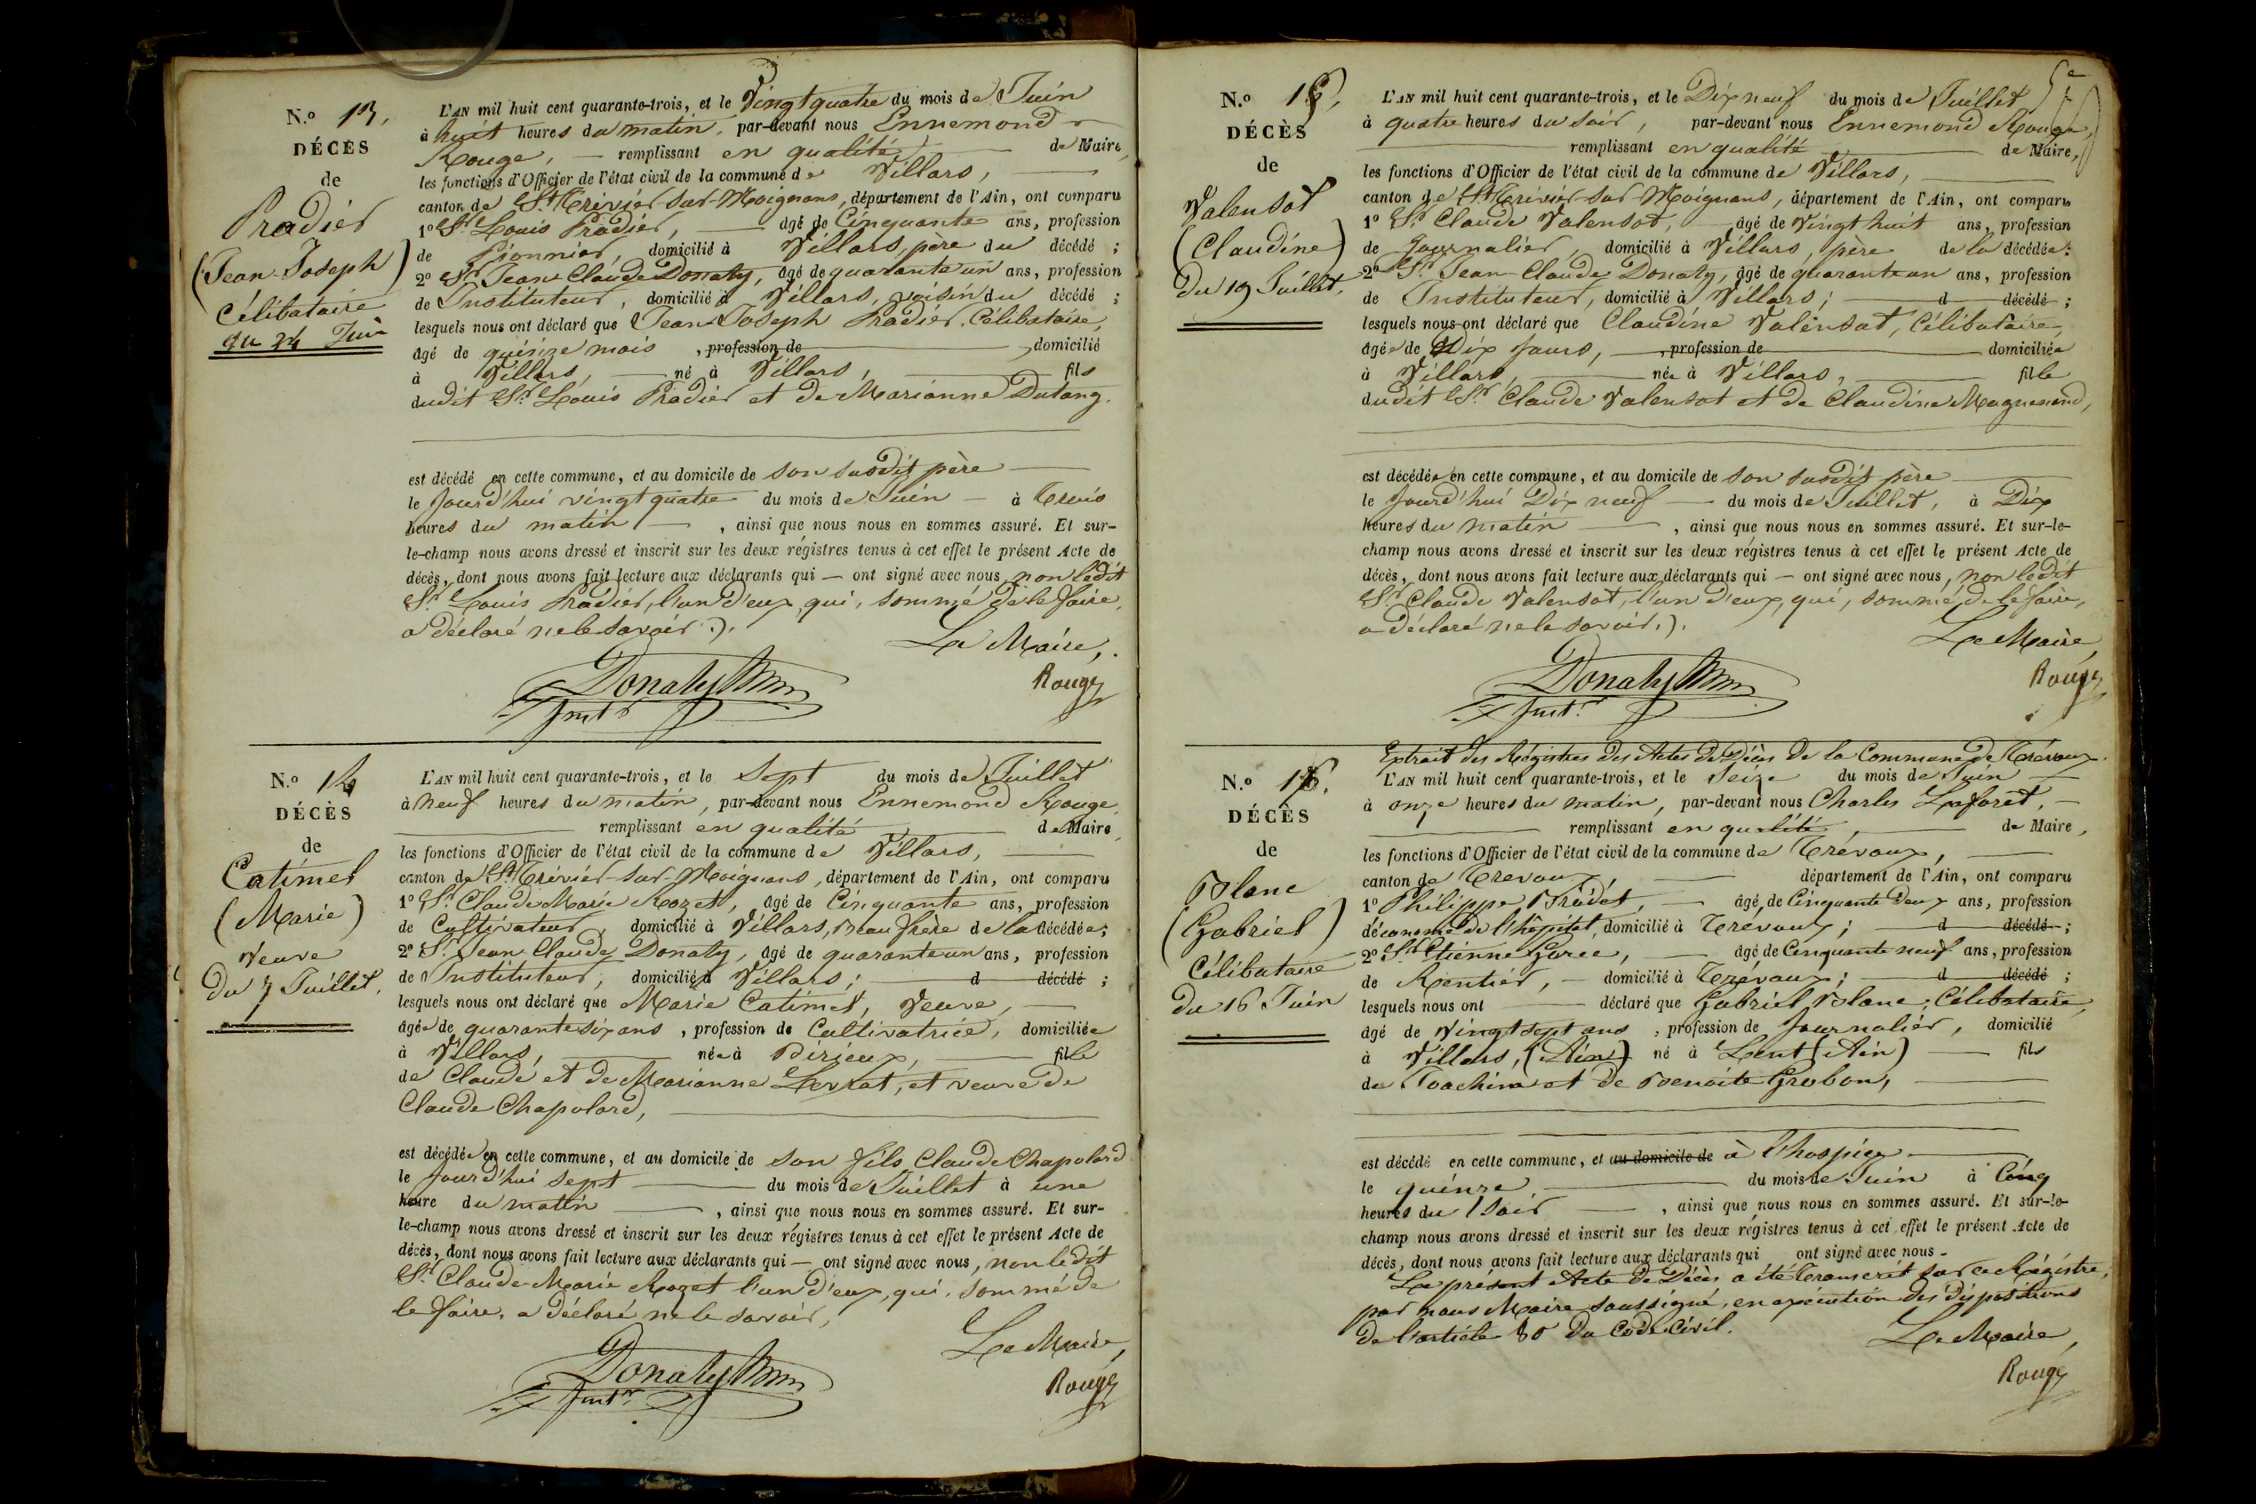 N.º 13.
DÉCÈS
de
Pradier
(Jean-Joseph)
Célibataire
du 24 Juin
L'AN mil huit cent quarante-trois, et le Vingt quatre du mois de Juin
à huit heures du matin, par-devant nous Ennemond
Rouge, remplissant en qualité de Maire,
les fonctions d'Officier de l'état civil de la commune de Villars,
canton de St Trévier-sur-Moignans, département de l'Ain, ont comparu
1º Sr Louis Pradier, âgé de Cinquante ans, profession
de Pionnier, domicilié à Villars, père du décédé ;
2º Sr Jean-Claude Donaty, âgé de quarante un ans, profession
de Instituteur, domicilié à Villars, voisin du décédé ;
lesquels nous ont déclaré que Jean-Joseph Pradier, Célibataire,
âgé de quinze mois, profession de domicilié
à Villars, né à Villars, fils
dudit Sr Louis Pradier et de Marianne Dutang.
est décédé en cette commune, et au domicile de son susdit père
le jourd'hui vingt quatre du mois de Juin à trois
heures du matin, ainsi que nous nous en sommes assuré. Et sur-
le-champ nous avons dressé et inscrit sur les deux régistres tenus à cet effet le présent Acte de
décès, dont nous avons fait lecture aux déclarants qui — ont signé avec nous, non ledit
Sr Louis Pradier, l'un d'eux, qui, sommé de le faire,
a déclaré ne le savoir.).
Le Maire,
Donaty
Instr
Rouge
N.º 14
DÉCÈS
de
Catimel
(Marie)
Veuve
du 7 Juillet.
L'AN mil huit cent quarante-trois, et le Sept du mois de Juillet
à neuf heures du matin, par-devant nous Ennemond Rouge
remplissant en qualité de Maire,
les fonctions d'Officier de l'état civil de la commune de Villars,
canton de St Trévier-sur-Moignans, département de l'Ain, ont comparu
1º Sr Claude-Marie Rozet, âgé de Cinquante ans, profession
de Cultivateur, domicilié à Villars, Beau frère de la décédée ;
2º Sr Jean Claude Donaty, âgé de quarante un ans, profession
de Instituteur, domicilié à Villars ; d décédé ;
lesquels nous ont déclaré que Marie Catimel, Veuve,
âgée de quarante six ans, profession de Cultivatrice, domiciliée
à Villars, née à Birieux, fille
de Claude et de Marianne Levrat, et veuve de
Claude Chapolard,
est décédée en cette commune, et au domicile de son fils Claude Chapolard
le jourd'hui sept du mois de Juillet à une
heure du matin, ainsi que nous nous en sommes assuré. Et sur-
le-champ nous avons dressé et inscrit sur les deux régistres tenus à cet effet le présent Acte de
décès, dont nous avons fait lecture aux déclarants qui — ont signé avec nous, non ledit
Sr Claude-Marie Rozet l'un d'eux, qui, sommé de
le faire, a déclaré ne le savoir,
Le Maire,
Donaty
Instr
Rouge
5e
N.º 15.
DÉCÈS
de
Valensot
(Claudine)
du 19 Juillet.
L'AN mil huit cent quarante-trois, et le Dix neuf du mois de Juillet
à quatre heures du soir, par-devant nous Ennemond Rouge,
remplissant en qualité de Maire,
les fonctions d'Officier de l'état civil de la commune de Villars,
canton de St Trévier-sur-Moignans, département de l'Ain, ont comparu
1º Sr Claude Valensot, âgé de vingt huit ans, profession
de Journalier, domicilié à Villars, père de la décédée :
2º Sr Jean-Claude Donaty, âgé de quarante un ans, profession
de Instituteur, domicilié à Villars ; d décédé ;
lesquels nous ont déclaré que Claudine Valensot, Célibataire
âgée de Dix jours, profession de domiciliée
à Villars, née à Villars, fille
dudit Sr Claude Valensot et de Claudine Maguenand,
est décédée en cette commune, et au domicile de son susdit père
le jourd'hui Dix neuf du mois de Juillet, à Dix
heures du matin, ainsi que nous nous en sommes assuré. Et sur-le-
champ nous avons dressé et inscrit sur les deux régistres tenus à cet effet le présent Acte de
décès, dont nous avons fait lecture aux déclarants qui — ont signé avec nous, non ledit
Sr Claude Valensot, l'un d'eux, qui, sommé de le faire,
a déclaré ne le savoir.).
Le Maire,
Donaty
Instr
Rouge
N.º 16.
DÉCÈS
de
Blanc
(Gabriel)
Célibataire
du 16 Juin
Extrait des Régistres des Actes de Décès de la Commune de Trévoux.
L'AN mil huit cent quarante-trois, et le seize du mois de Juin
à onze heures du matin, par-devant nous Charles Laforêt,
remplissant en qualité, de Maire,
les fonctions d'Officier de l'état civil de la commune de Trévoux,
canton de Trévoux, département de l'Ain, ont comparu
1º Philippe Bridet, âgé de Cinquante deux ans, profession
d'économe de l'hôpital, domicilié à Trévoux ; d décédé ;
2º Sr Etienne Gorée, âgé de Cinquante neuf ans, profession
de Rentier, domicilié à Trévoux ; d décédé ;
lesquels nous ont déclaré que Gabriel Blanc, Célibataire,
âgé de vingt sept ans, profession de Journalier, domicilié
à Villars, (Ain) né à Lent (Ain) fils
de Joachim et de Benoite Grobon,
est décédé en cette commune, et au domicile de à l'hospice
le quinze du mois de Juin à Cinq
heures du soir, ainsi que nous nous en sommes assuré. Et sur-le-
champ nous avons dressé et inscrit sur les deux régistres tenus à cet effet le présent Acte de
décès, dont nous avons fait lecture aux déclarants qui ont signé avec nous.
Le présent Acte de Décès a été transcrit sur ce Régistre,
par nous Maire soussigné, en exécution des dispositions
de l'article 80 du Code Civil.
Le Maire,
Rouge